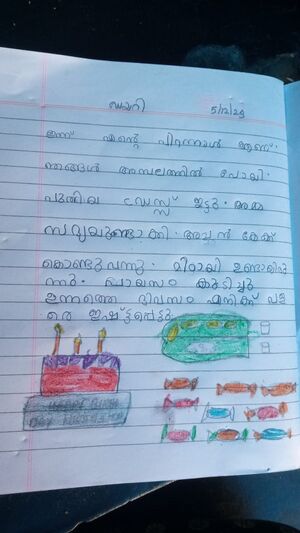 ഡയറി 5/12/24
ഇന്ന് എന്റെ പിറന്നാൾ ആണ്.
ഞങ്ങൾ അമ്പലത്തിൽ പോയി.
പുതിയ ഡ്രസ്സ് ഇട്ടു. അമ്മ
സദ്യയുണ്ടാക്കി. അച്ഛൻ കേക്ക്
കൊണ്ടുവന്നു. മിഠായി ഉണ്ടായിരു
ന്നു. പായസം കുടിച്ചു
ഇന്നത്തെ ദിവസം എനിക്ക് വള
രെ ഇഷ്ട്ടപ്പെട്ടു.
HAPPY BIRTH
DAY